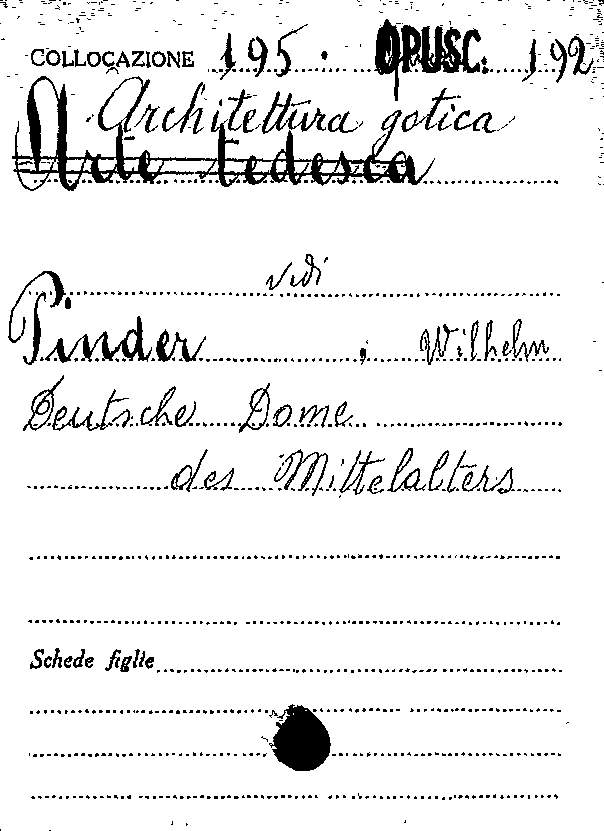 COLLOCAZIONE 195. OPUSC. 192
Architettura gotica
Arte tedesca
vedi
Pinder, Wilhelm
Deutsche Dome
des Mittelalters
Schede figlie